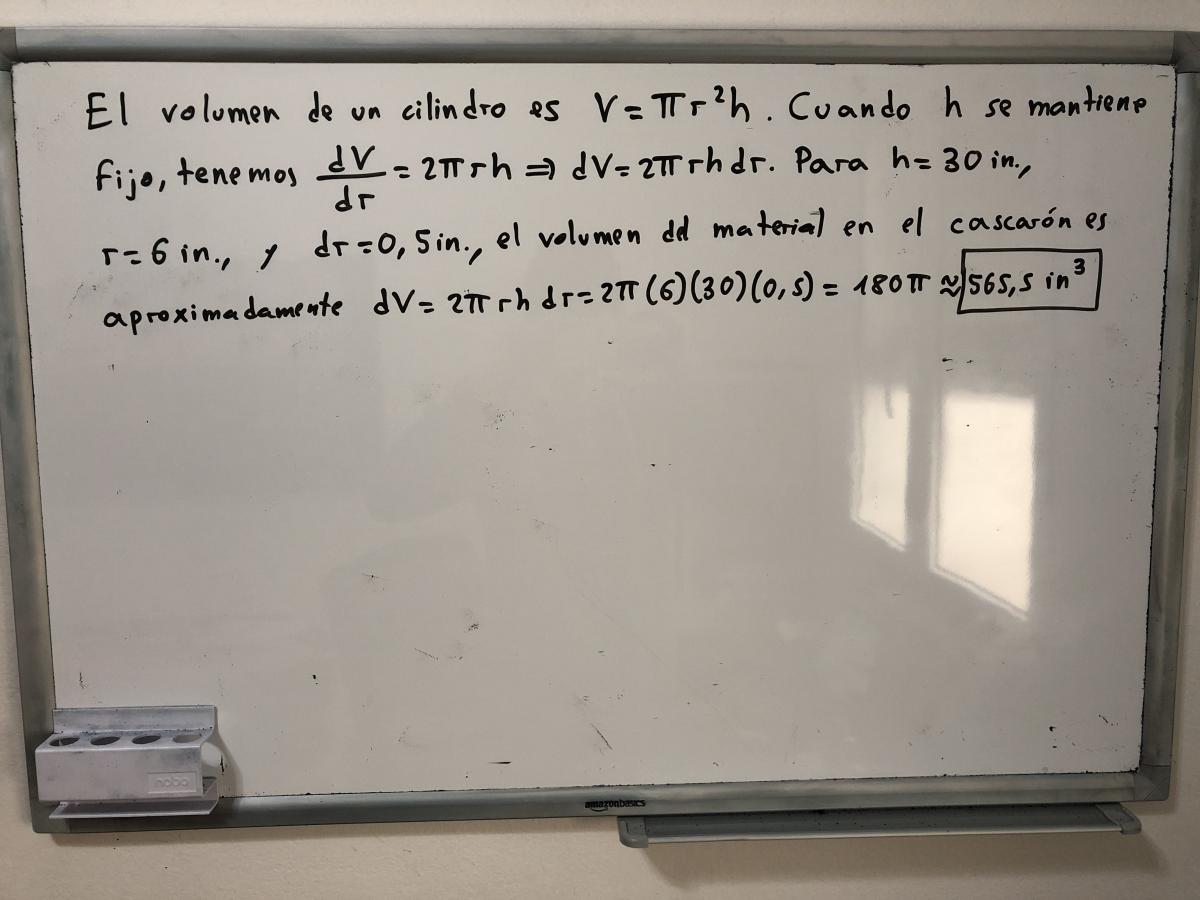 El volumen de un cilindro es V = πr²h. Cuando h se mantiene
fijo, tenemos dV/dr = 2πrh ⇒ dV = 2πrh dr. Para h = 30 in.,
r = 6 in., y dr = 0,5 in., el volumen del material en el cascarón es
aproximadamente dV = 2πrh dr = 2π(6)(30)(0,5) = 180π ≈ 565,5 in³
nobo
amazonbasics